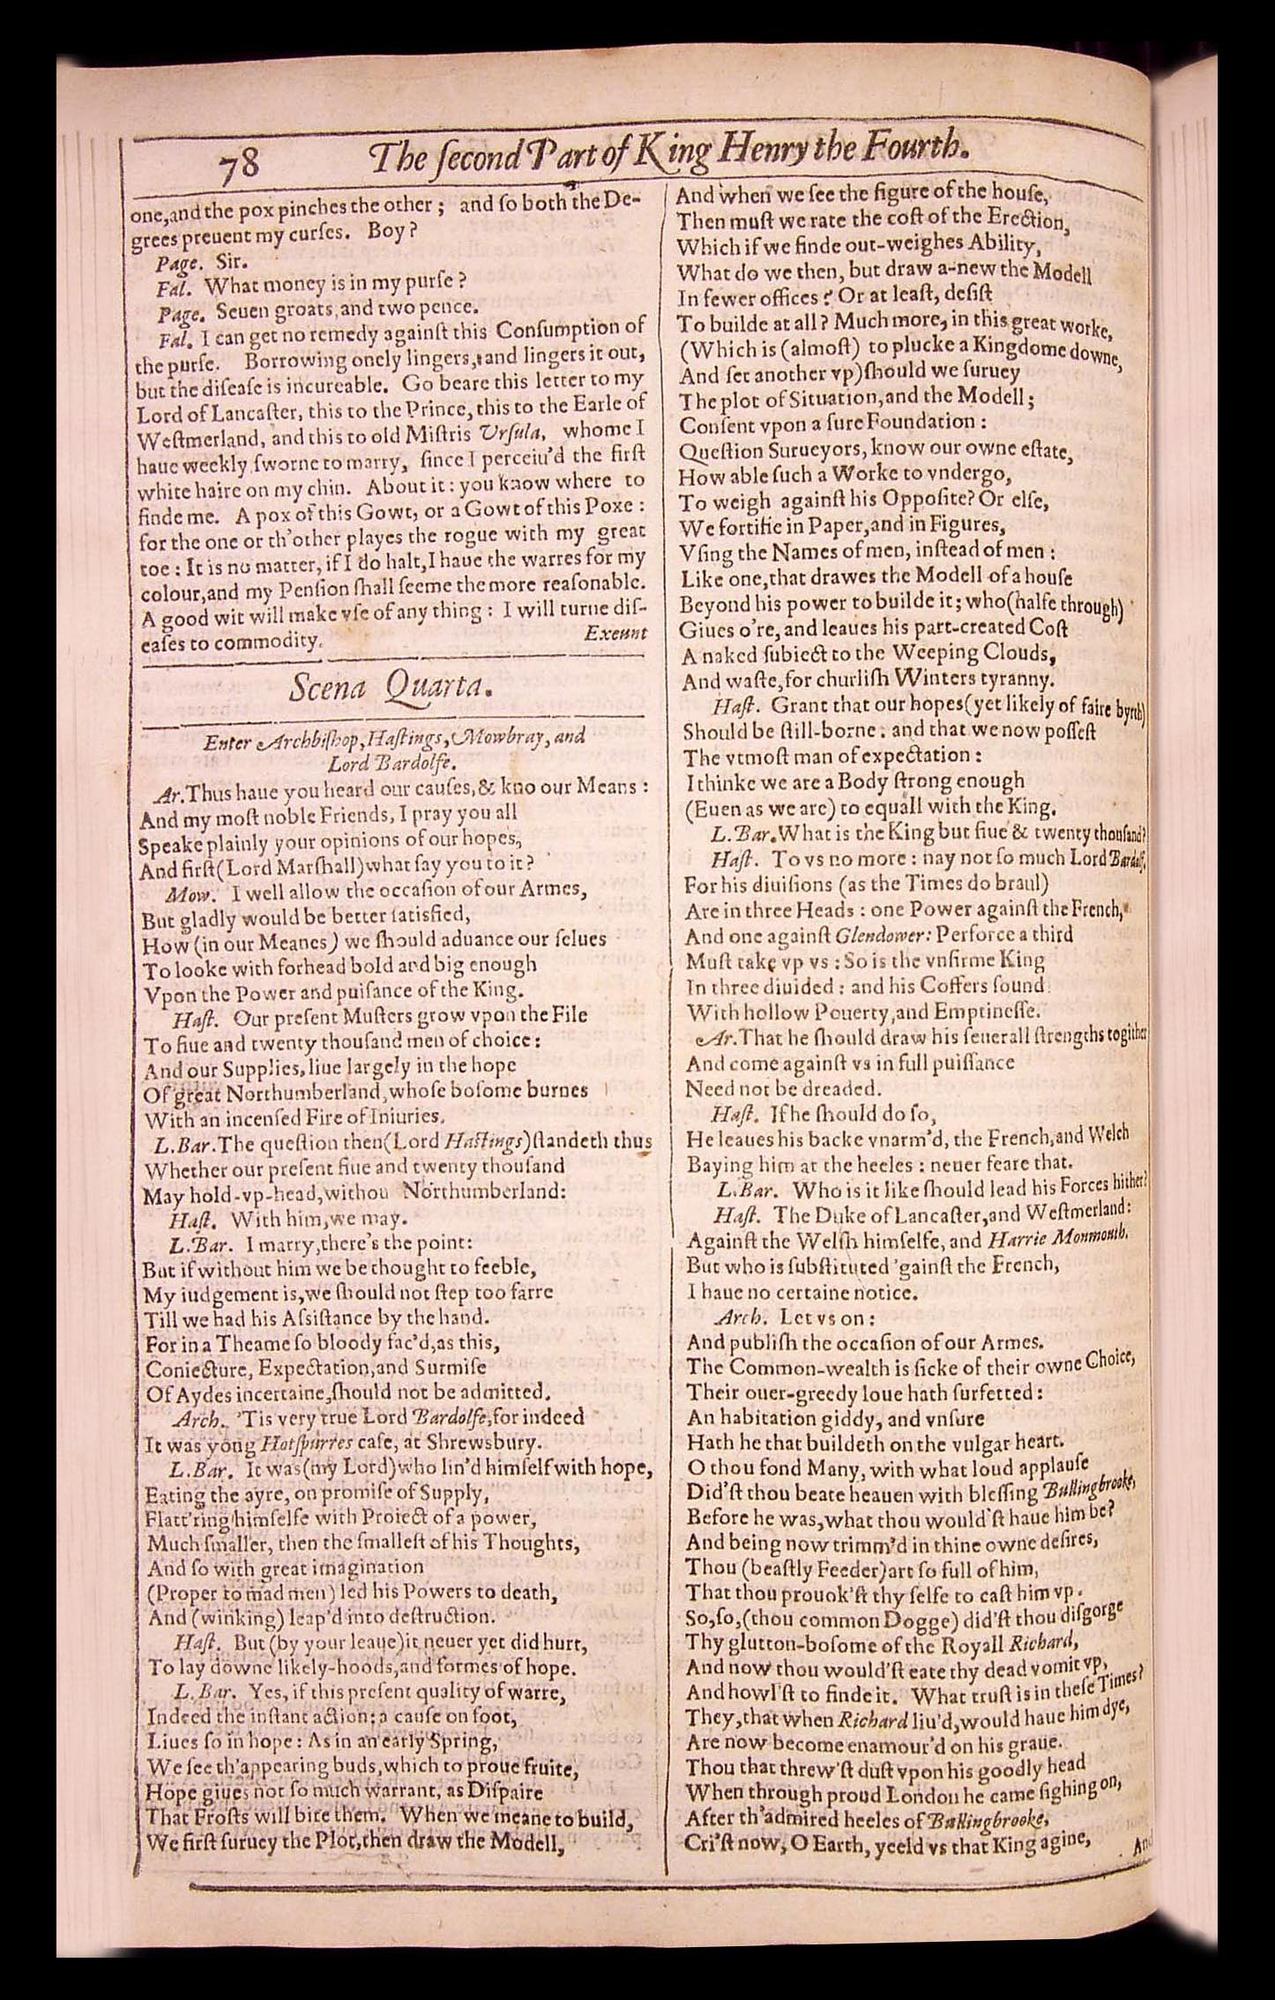 78 The ſecond Part of King Henry the Fourth.
one,and the pox pinches the other ; and ſo both the De-
grees preuent my curſes. Boy?
Page. Sir.
Fal. What money is in my purſe?
Page. Seuen groats, and two pence.
Fal. I can get no remedy againſt this Conſumption of
the purſe. Borrowing onely lingers, and lingers it out,
but the diſeaſe is incureable. Go beare this letter to my
Lord of Lancaſter, this to the Prince, this to the Earle of
Weſtmerland, and this to old Miſtris Vrſula, whome I
haue weekly ſworne to marry, ſince I perceiu'd the firſt
white haire on my chin. About it : you know where to
finde me. A pox of this Gowt, or a Gowt of this Poxe :
for the one or th'other playes the rogue with my great
toe : It is no matter, if I do halt, I haue the warres for my
colour,and my Penſion ſhall ſeeme the more reaſonable.
A good wit will make vſe of any thing : I will turne diſ-
eaſes to commodity. Exeunt
Scena Quarta.
Enter Archbiſhop, Haſtings, Mowbray, and
Lord Bardolfe.
Ar.Thus haue you heard our cauſes,& kno our Means :
And my moſt noble Friends, I pray you all
Speake plainly your opinions of our hopes,
And firſt (Lord Marſhall) what ſay you to it?
Mow. I well allow the occaſion of our Armes,
But gladly would be better ſatisfied,
How (in our Meanes) we ſhould aduance our ſelues
To looke with forhead bold and big enough
Vpon the Power and puiſance of the King.
Haſt. Our preſent Muſters grow vpon the File
To fiue and twenty thouſand men of choice :
And our Supplies, liue largely in the hope
Of great Northumberland, whoſe boſome burnes
With an incenſed Fire of Iniuries.
L.Bar.The queſtion then (Lord Haſtings) ſtandeth thus
Whether our preſent fiue and twenty thouſand
May hold-vp-head, withou Northumberland:
Haſt. With him, we may.
L.Bar. I marry, there's the point:
But if without him we be thought to feeble,
My iudgement is, we ſhould not ſtep too farre
Till we had his Aſsiſtance by the hand.
For in a Theame ſo bloody fac'd, as this,
Coniecture, Expectation, and Surmiſe
Of Aydes incertaine, ſhould not be admitted.
Arch. 'Tis very true Lord Bardolfe, for indeed
It was yong Hotſpurres caſe, at Shrewsbury.
L.Bar. It was (my Lord) who lin'd himſelf with hope,
Eating the ayre, on promiſe of Supply,
Flatt'ring himſelfe with Proiect of a power,
Much ſmaller, then the ſmalleſt of his Thoughts,
And ſo with great imagination
(Proper to mad men) led his Powers to death,
And (winking) leap'd into deſtruction.
Haſt. But (by your leaue) it neuer yet did hurt,
To lay downe likely-hoods, and formes of hope.
L.Bar. Yes, if this preſent quality of warre,
Indeed the inſtant action: a cauſe on foot,
Liues ſo in hope : As in an early Spring,
We ſee th'appearing buds, which to proue fruite,
Hope giues not ſo much warrant, as Diſpaire
That Froſts will bite them. When we meane to build,
We firſt ſuruey the Plot, then draw the Modell,
And when we ſee the figure of the houſe,
Then muſt we rate the coſt of the Erection,
Which if we finde out-weighes Ability,
What do we then, but draw a-new the Modell
In fewer offices? Or at leaſt, deſiſt
To builde at all? Much more, in this great worke,
(Which is (almoſt) to plucke a Kingdome downe,
And ſet another vp) ſhould we ſuruey
The plot of Situation, and the Modell;
Conſent vpon a ſure Foundation :
Queſtion Surueyors, know our owne eſtate,
How able ſuch a Worke to vndergo,
To weigh againſt his Oppoſite? Or elſe,
We fortifie in Paper, and in Figures,
Vſing the Names of men, inſtead of men :
Like one, that drawes the Modell of a houſe
Beyond his power to builde it; who (halfe through)
Giues o're, and leaues his part-created Coſt
A naked ſubiect to the Weeping Clouds,
And waſte, for churliſh Winters tyranny.
Haſt. Grant that our hopes (yet likely of faire byrth)
Should be ſtill-borne : and that we now poſſeſt
The vtmoſt man of expectation :
I thinke we are a Body ſtrong enough
(Euen as we are) to equall with the King.
L.Bar.What is the King but fiue & twenty thouſand?
Haſt. To vs no more : nay not ſo much Lord Bardolf,
For his diuiſions (as the Times do braul)
Are in three Heads : one Power againſt the French,
And one againſt Glendower: Perforce a third
Muſt take vp vs : So is the vnfirme King
In three diuided : and his Coffers ſound
With hollow Pouerty, and Emptineſſe.
Ar.That he ſhould draw his ſeuerall ſtrengths togither
And come againſt vs in full puiſſance
Need not be dreaded.
Haſt. If he ſhould do ſo,
He leaues his backe vnarm'd, the French, and Welch
Baying him at the heeles : neuer feare that.
L.Bar. Who is it like ſhould lead his Forces hither?
Haſt. The Duke of Lancaſter, and Weſtmerland:
Againſt the Welſh himſelfe, and Harrie Monmouth.
But who is ſubſtituted 'gainſt the French,
I haue no certaine notice.
Arch. Let vs on :
And publiſh the occaſion of our Armes.
The Common-wealth is ſicke of their owne Choice,
Their ouer-greedy loue hath ſurfetted :
An habitation giddy, and vnſure
Hath he that buildeth on the vulgar heart.
O thou fond Many, with what loud applauſe
Did'ſt thou beate heauen with bleſſing Bullingbrooke,
Before he was, what thou would'ſt haue him be?
And being now trimm'd in thine owne deſires,
Thou (beaſtly Feeder) art ſo full of him,
That thou prouok'ſt thy ſelfe to caſt him vp.
So, ſo, (thou common Dogge) did'ſt thou diſgorge
Thy glutton-boſome of the Royall Richard,
And now thou would'ſt eate thy dead vomit vp,
And howl'ſt to finde it. What truſt is in theſe Times?
They, that when Richard liu'd, would haue him dye,
Are now become enamour'd on his graue.
Thou that threw'ſt duſt vpon his goodly head
When through proud London he came ſighing on,
After th'admired heeles of Bullingbrooke,
Cri'ſt now, O Earth, yeeld vs that King agine,
And